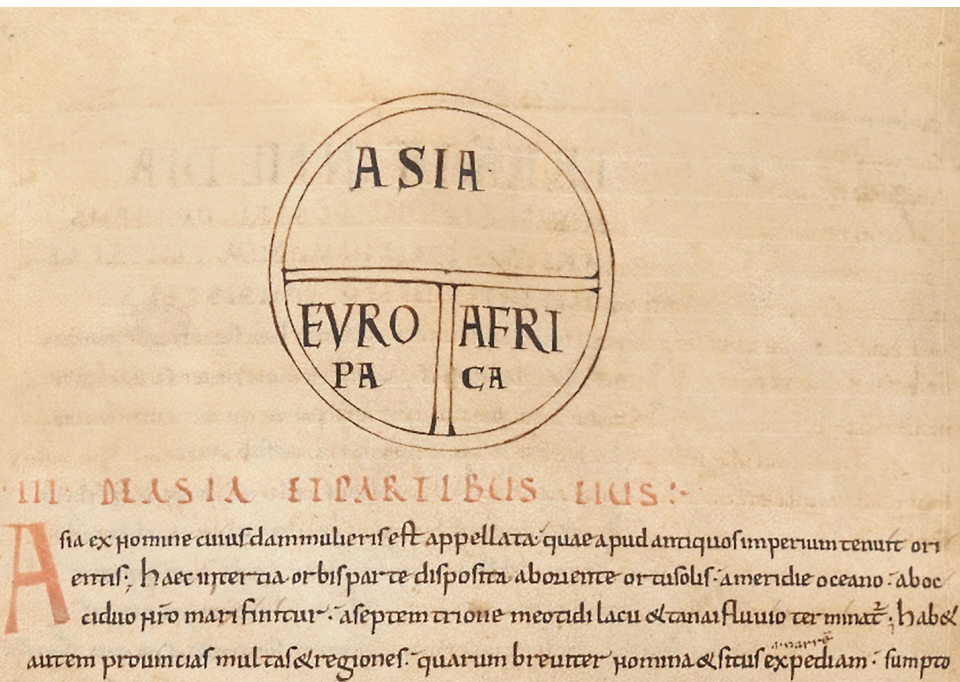 ASIA
EVRO
PA
AFRI
CA
·III· DE ASIA ET PARTIBUS EIUS:·
Asia ex nomine cuiusdam mulieris est appellata· quae apud antiquos imperium tenuit ori
entis; haec in tertia orbis parte disposita ab oriente ortu solis· a meridie oceano· ab oc
ciduo nr̄o mari finitur· a septemtrione meotidi lacu & tanai fluvio terminat᷒· hab&
autem provincias multas & regiones· quarum breviter nomina & situs expediam· sumpto